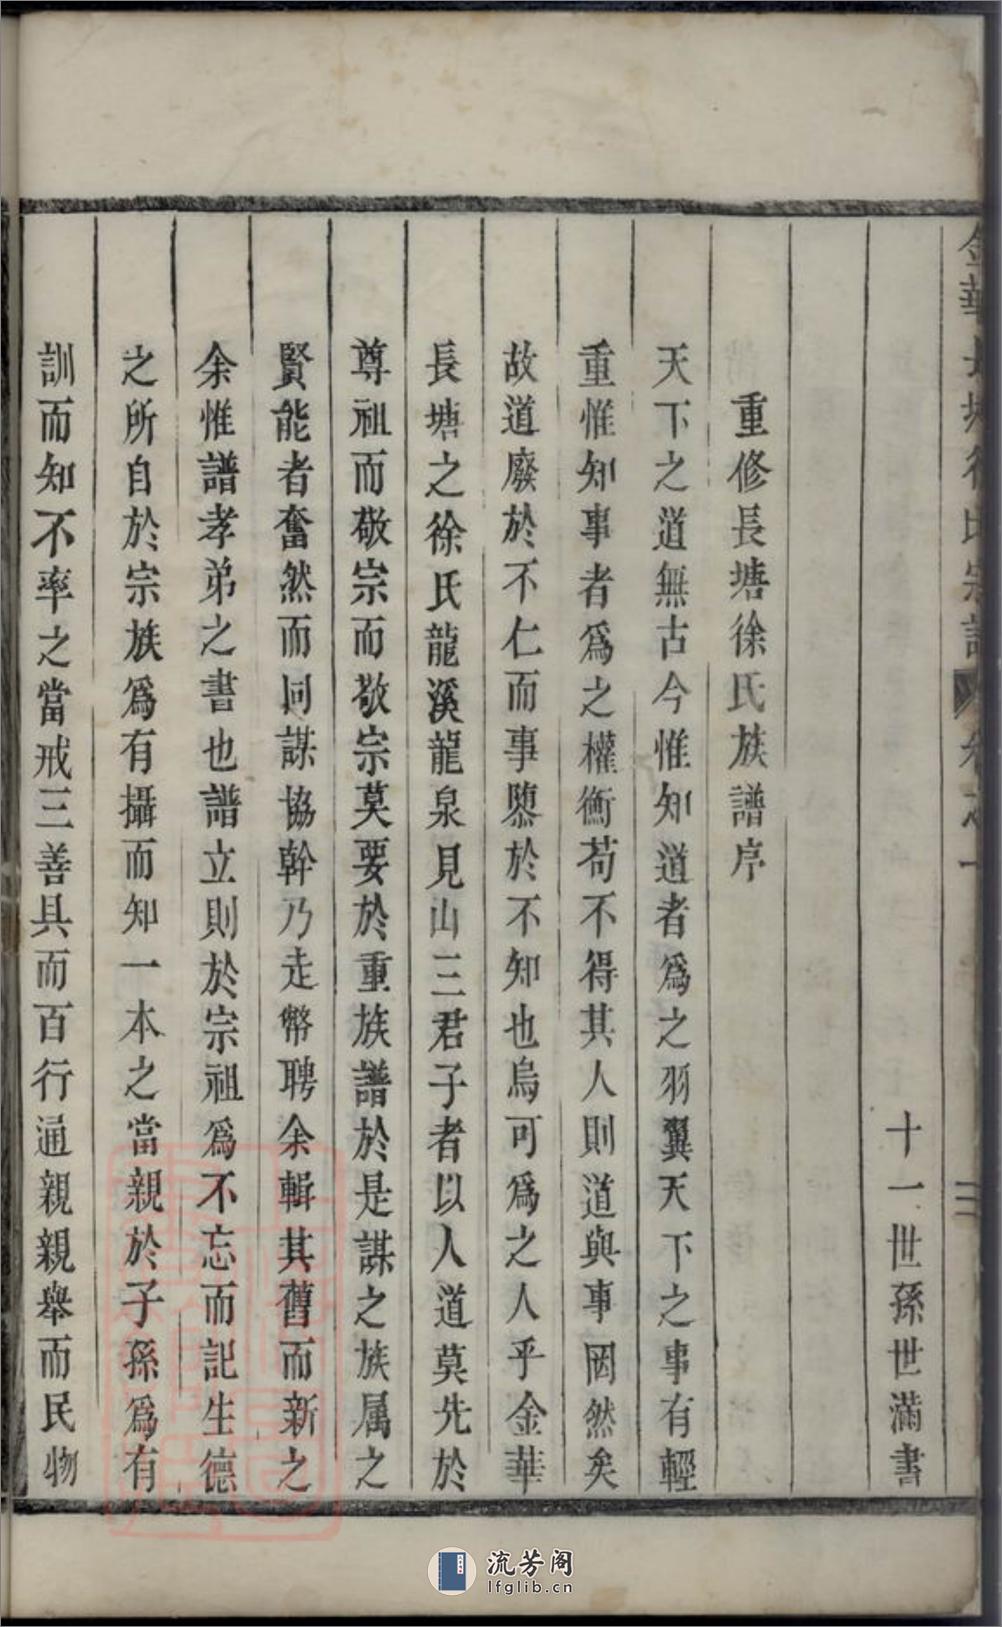 金華長塘徐氏宗譜 卷之一 三
十一世孫世滿書
重修長塘徐氏族譜序
天下之道無古今惟知道者爲之羽翼天下之事有輕
重惟知事者爲之權衡苟不得其人則道與事罔然矣
故道廢於不仁而事隳於不知也烏可爲之人乎金華
長塘之徐氏龍溪龍泉見山三君子者以人道莫先於
尊祖而敬宗而敬宗莫要於重族譜於是謀之族属之
賢能者奮然而同謀協幹乃走幣聘余輯其舊而新之
余惟譜孝弟之書也譜立則於宗祖爲不忘而記生德
之所自於宗族爲有攝而知一本之當親於子孫爲有
訓而知不率之當戒三善具而百行通親親舉而民物
流芳阁
lfglib.cn